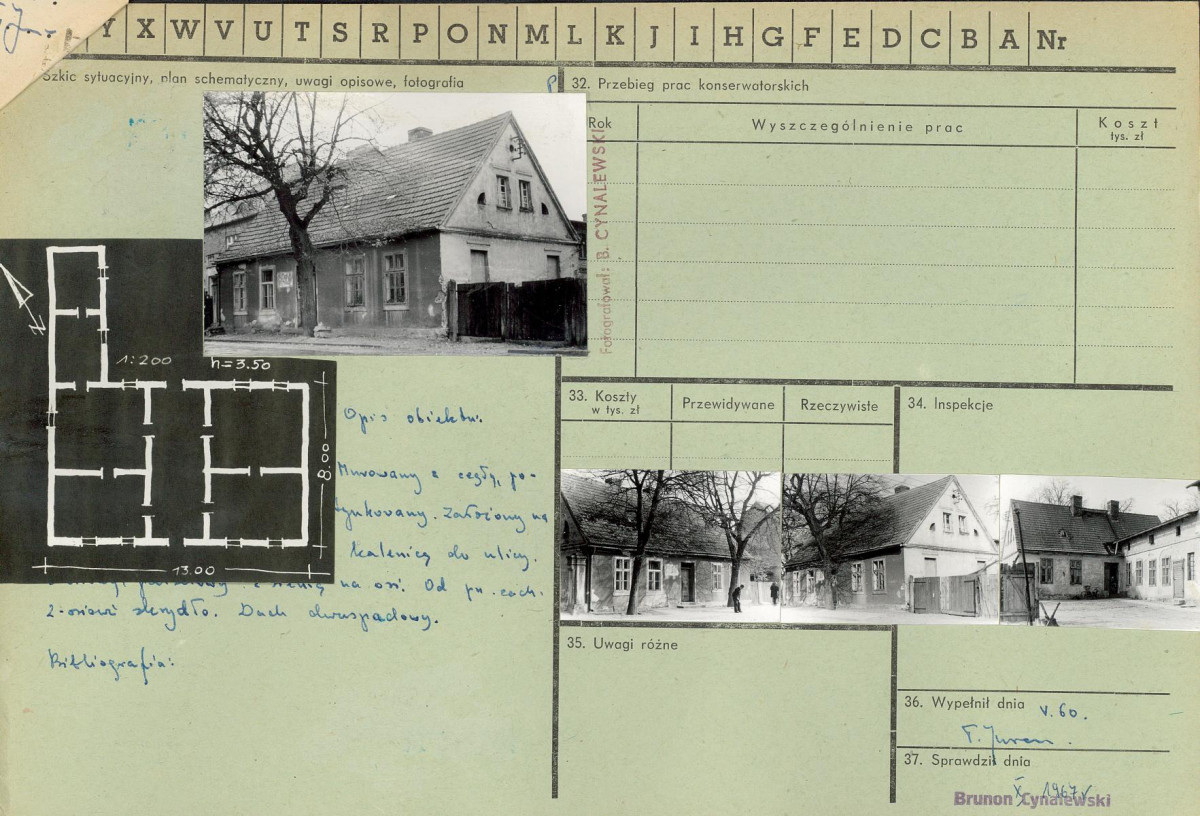 Y X W V U T S R P O N M L K J I H G F E D C B A Nr
Szkic sytuacyjny, plan schematyczny, uwagi opisowe, fotografia
32. Przebieg prac konserwatorskich
Rok Wyszczególnienie prac Koszt
tys. zł
Fotografował: B. CYNALEWSKI
1:200 h=3.50
8.00
13.00
Opis obiektu:
Murowany z cegły, po-
tynkowany. Założony na
kalenicą do ulicy.
z sienią na osi. Od pn.-zach.
2-osiowe skrzydło. Dach dwuspadowy.
Bibliografia:
33. Koszty
w tys. zł
Przewidywane
Rzeczywiste
34. Inspekcje
35. Uwagi różne
36. Wypełnił dnia V. 60.
37. Sprawdził dnia
X 1967
Brunon Cynalewski